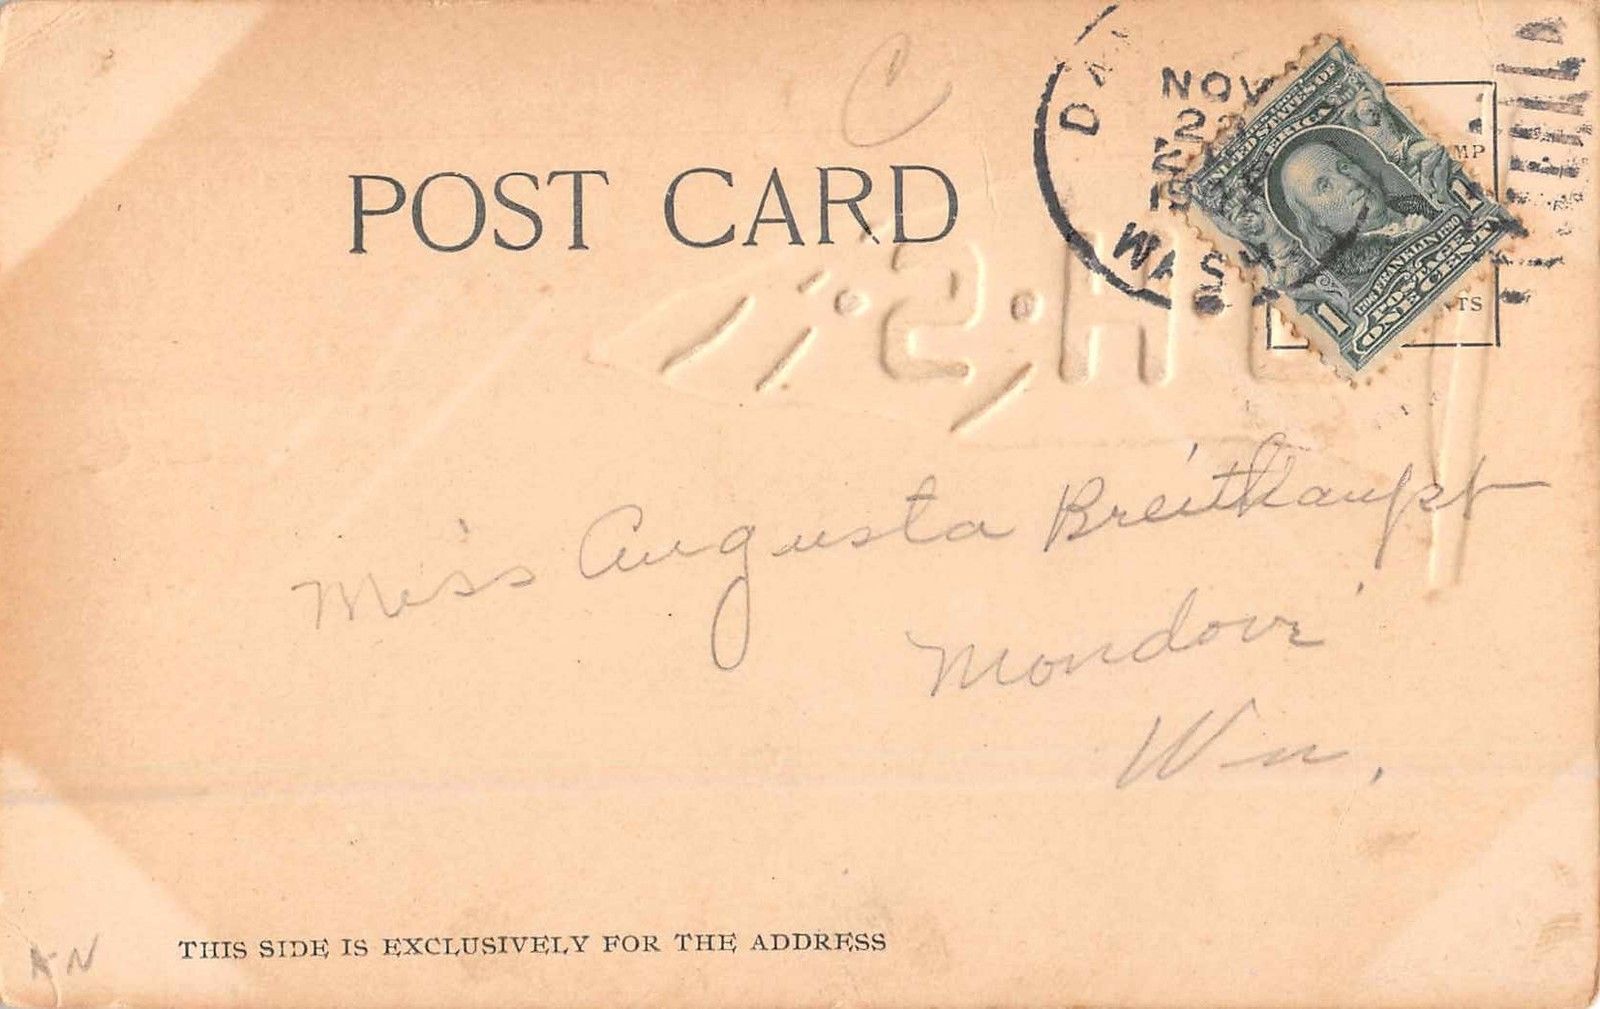 C
POST CARD
NOV
WASH
UNITED STATES OF
AMERICA
1706 FRANKLIN 1790
POSTAGE
1 ONE CENT 1
Miss Augusta Breitkaupt
Mondovi
Wn.
THIS SIDE IS EXCLUSIVELY FOR THE ADDRESS